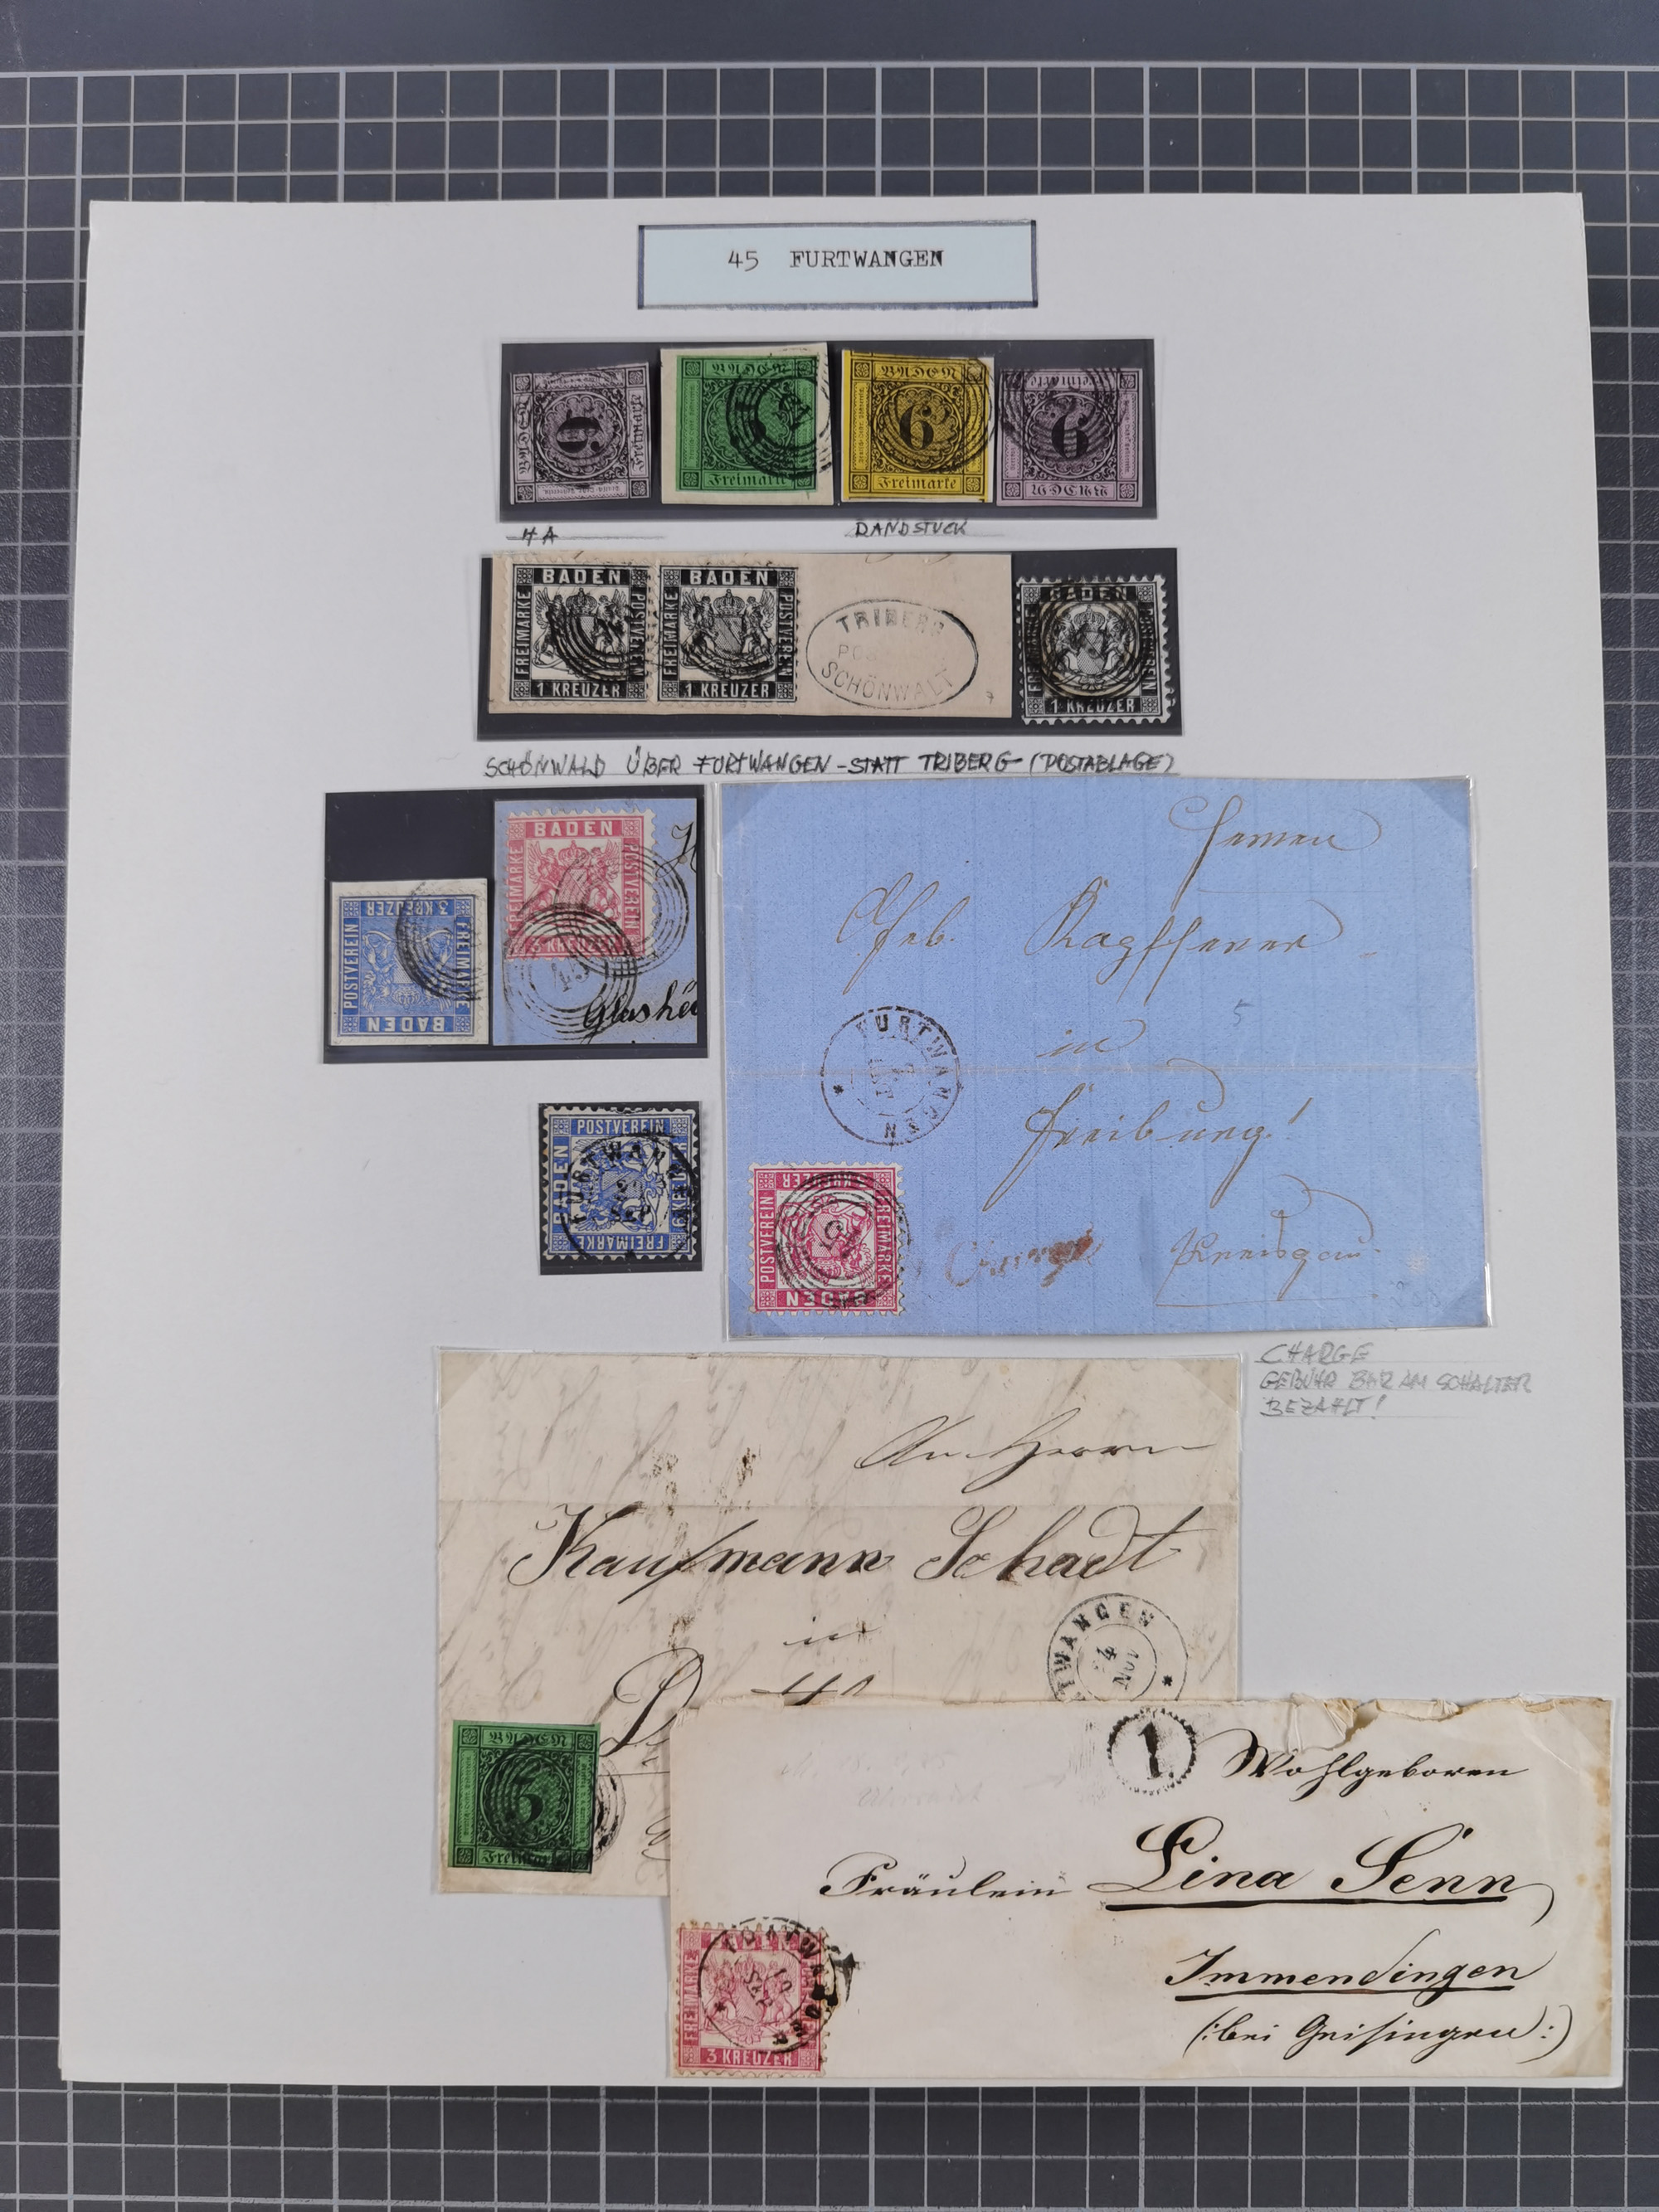 45 FURTWANGEN
BADEN
Freimarke
9
BADEN
Freimarke
BADEN
6
Freimarke
Freimarke
6
BADEN
4A
RANDSTÜCK
BADEN
FREIMARKE
POSTVEREIN
1 KREUZER
BADEN
FREIMARKE
POSTVEREIN
1 KREUZER
TRIBERG
SCHÖNWALT
BADEN
FREIMARKE
1 KREUZER
SCHÖNWALD ÜBER FURTWANGEN - STATT TRIBERG - (POSTABLAGE)
3 KREUZER
POSTVEREIN
FREIMARKE
BADEN
BADEN
FREIMARKE
POSTVEREIN
3 KREUZER
45
POSTVEREIN
BADEN
FREIMARKE
FURTWANGEN
SEP
in
Freiburg!
5
FURTWANGEN
3 KREUZER
POSTVEREIN
FREIMARKE
BADEN
CHARGE
GEBÜHR BAR AM SCHALTER
BEZAHLT!
An Herrn
Kaufmann Schadt
in
FURTWANGEN
4
NOV
BADEN
3
Freimarke
1.
Wohlgeboren
Fräulein Lina Senn
Immendingen
(: bei Geisingen :)
FREIMARKE
3 KREUZER
FURTWANGEN
10
SEP